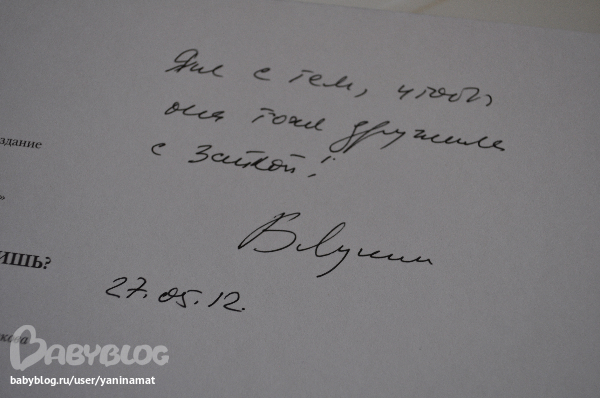 Яне с тем, чтобы
она тоже дружила
здание
с Зайкой!
»
В Лунин
ИШЬ?
27.05.12.
кова
BABYBLOG
babyblog.ru/user/yaninamat